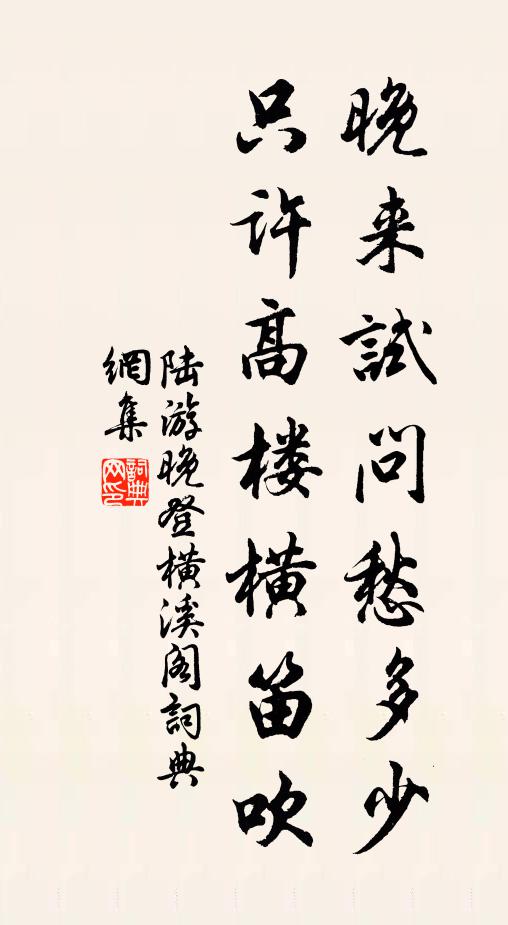 晚来試問愁多少
只许高楼橫笛吹
陆游晚登橫溪阁詞典
網集
詞典網印